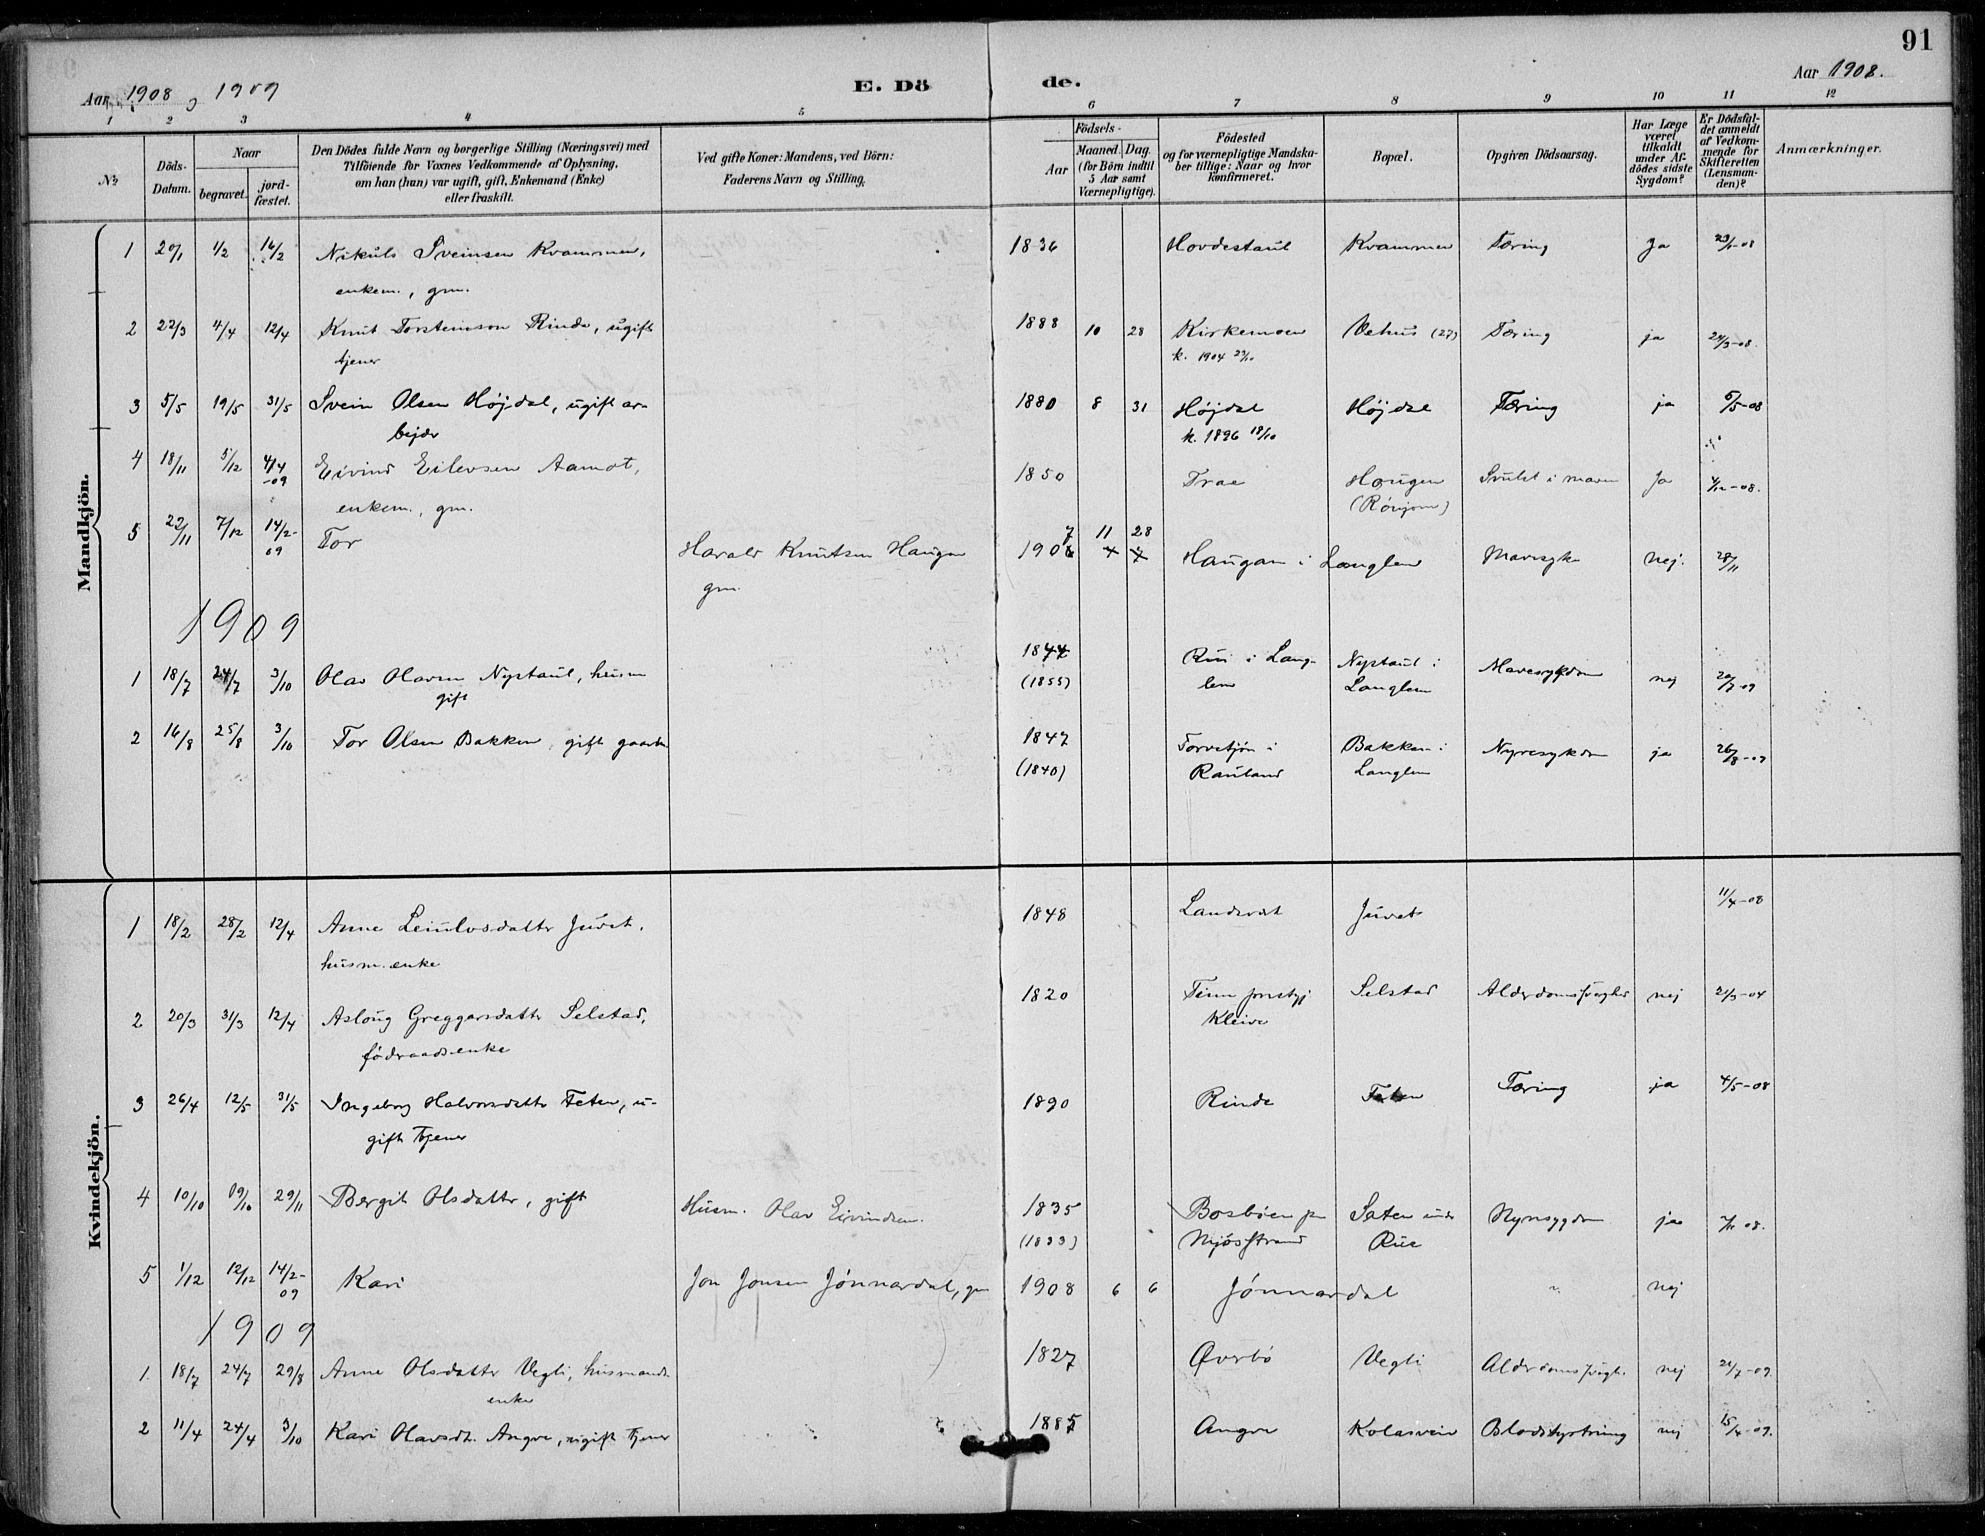 91
Aar 1908 og 1909 E. Dö de. Aar 1908.
1 2 3 4 5 6 7 8 9 10 11 12
No.
Döds-Datum.
Naar
begravet.
jord-fæstet.
Den Dödes fulde Navn og borgerlige Stilling (Næringsvei) med
Tilföiende for Voxnes Vedkommende af Oplysning,
om han (hun) var ugift, gift, Enkemand (Enke)
eller fraskilt.
Ved gifte Koner: Mandens, ved Börn:
Faderens Navn og Stilling.
Födsels-
Aar Maaned. Dag.
(for Börn indtil
5 Aar samt
Værnepligtige).
Födested
og for værnepligtige Mandska-
ber tillige: Naar og hvor
konfirmeret.
Bopæl.
Opgiven Dödsaarsag.
Har Læge
været
tilkaldt
under Af-
dödes sidste
Sygdom?
Er Dödsfal-
det anmeldt
af Vedkom-
mende for
Skifteretten
(Lensman-
den)?
Anmærkninger.
Mandkjön.
1 20/1 1/2 16/2 Nikuls Sveinsen Kvammen, 1836 Hovdestaul Kvammen Tæring Ja 23/1-08
enkem., gm.
2 22/3 4/4 12/4 Knut Torsteinson Rinde, ugift 1888 10 28 Kirkemoen Vehus (27) Tæring ja 24/3-08.
tjener k. 1904 23/10
3 5/5 19/5 31/5 Svein Olsen Höjdal, ugift ar- 1880 8 31 Höjdal Höjdal Tæring ja 6/5-08
bejder k. 1896 18/10
4 18/11 5/12 4/4-09 Eivind Eilevsen Aamot, 1850 Traa Haugen Svulst i maven Ja 4/12-08.
enkem., gm.
5 22/11 7/12 14/2-09 Tor Harald Knutsen Haugen 1907 11 28 Haugan i Langlem Mavesyke nej. 28/11
gm.
1909
1 18/7 24/7 3/10 Olav Olavsen Nystaul, husm 1844 Rui i Lang- Nystaul i Mavesygdom nej 20/7-09
gift (1855) lem Langlem
2 16/8 25/8 3/10 Tor Olsen Bakken, gift gaardm. 1847 Torvetjön i Bakken i Nyresykdom ja 26/8-09
(1840) Rauland Langlem
Kvindekjön.
1 18/2 28/2 12/4 Anne Leiulvsdatter Juvet, 1848 Landsvat Juvet 11/4-08
husm. enke
2 20/3 31/3 12/4 Aslaug Greggarsdatter Selstad, 1820 Tinn prestgj Selstad Alderdomssvaghed nej 21/3-04
födraadsenke Kleive
3 26/4 12/5 31/5 Ingeborg Halvorsdatter Teten, u- 1890 Rinde Teten Tæring ja 4/5-08
gift tjener
4 10/10 19/10 29/11 Bergit Olsdatter, gift Husm. Olav Eivindsen. 1835 Bosböen paa Saten under Nyresygdom ja
(1833) Mjösstrand Rue
5 1/12 12/12 14/2-09 Kari Jon Jonsen Jönnardal, gm 1908 6 6 Jönnardal " nej
1909
1. 18/7 24/7 29/8 Anne Olsdatter Vegli, husmands 1827 Øverbö Vegli Alderdomssvagh. nej 21/7-09.
enke
2 11/4 24/4 3/10 Kari Olavsdt. Angve, ugift tjener 1885 Angve Kolasvein Blodstyrtning nej 15/4-09.